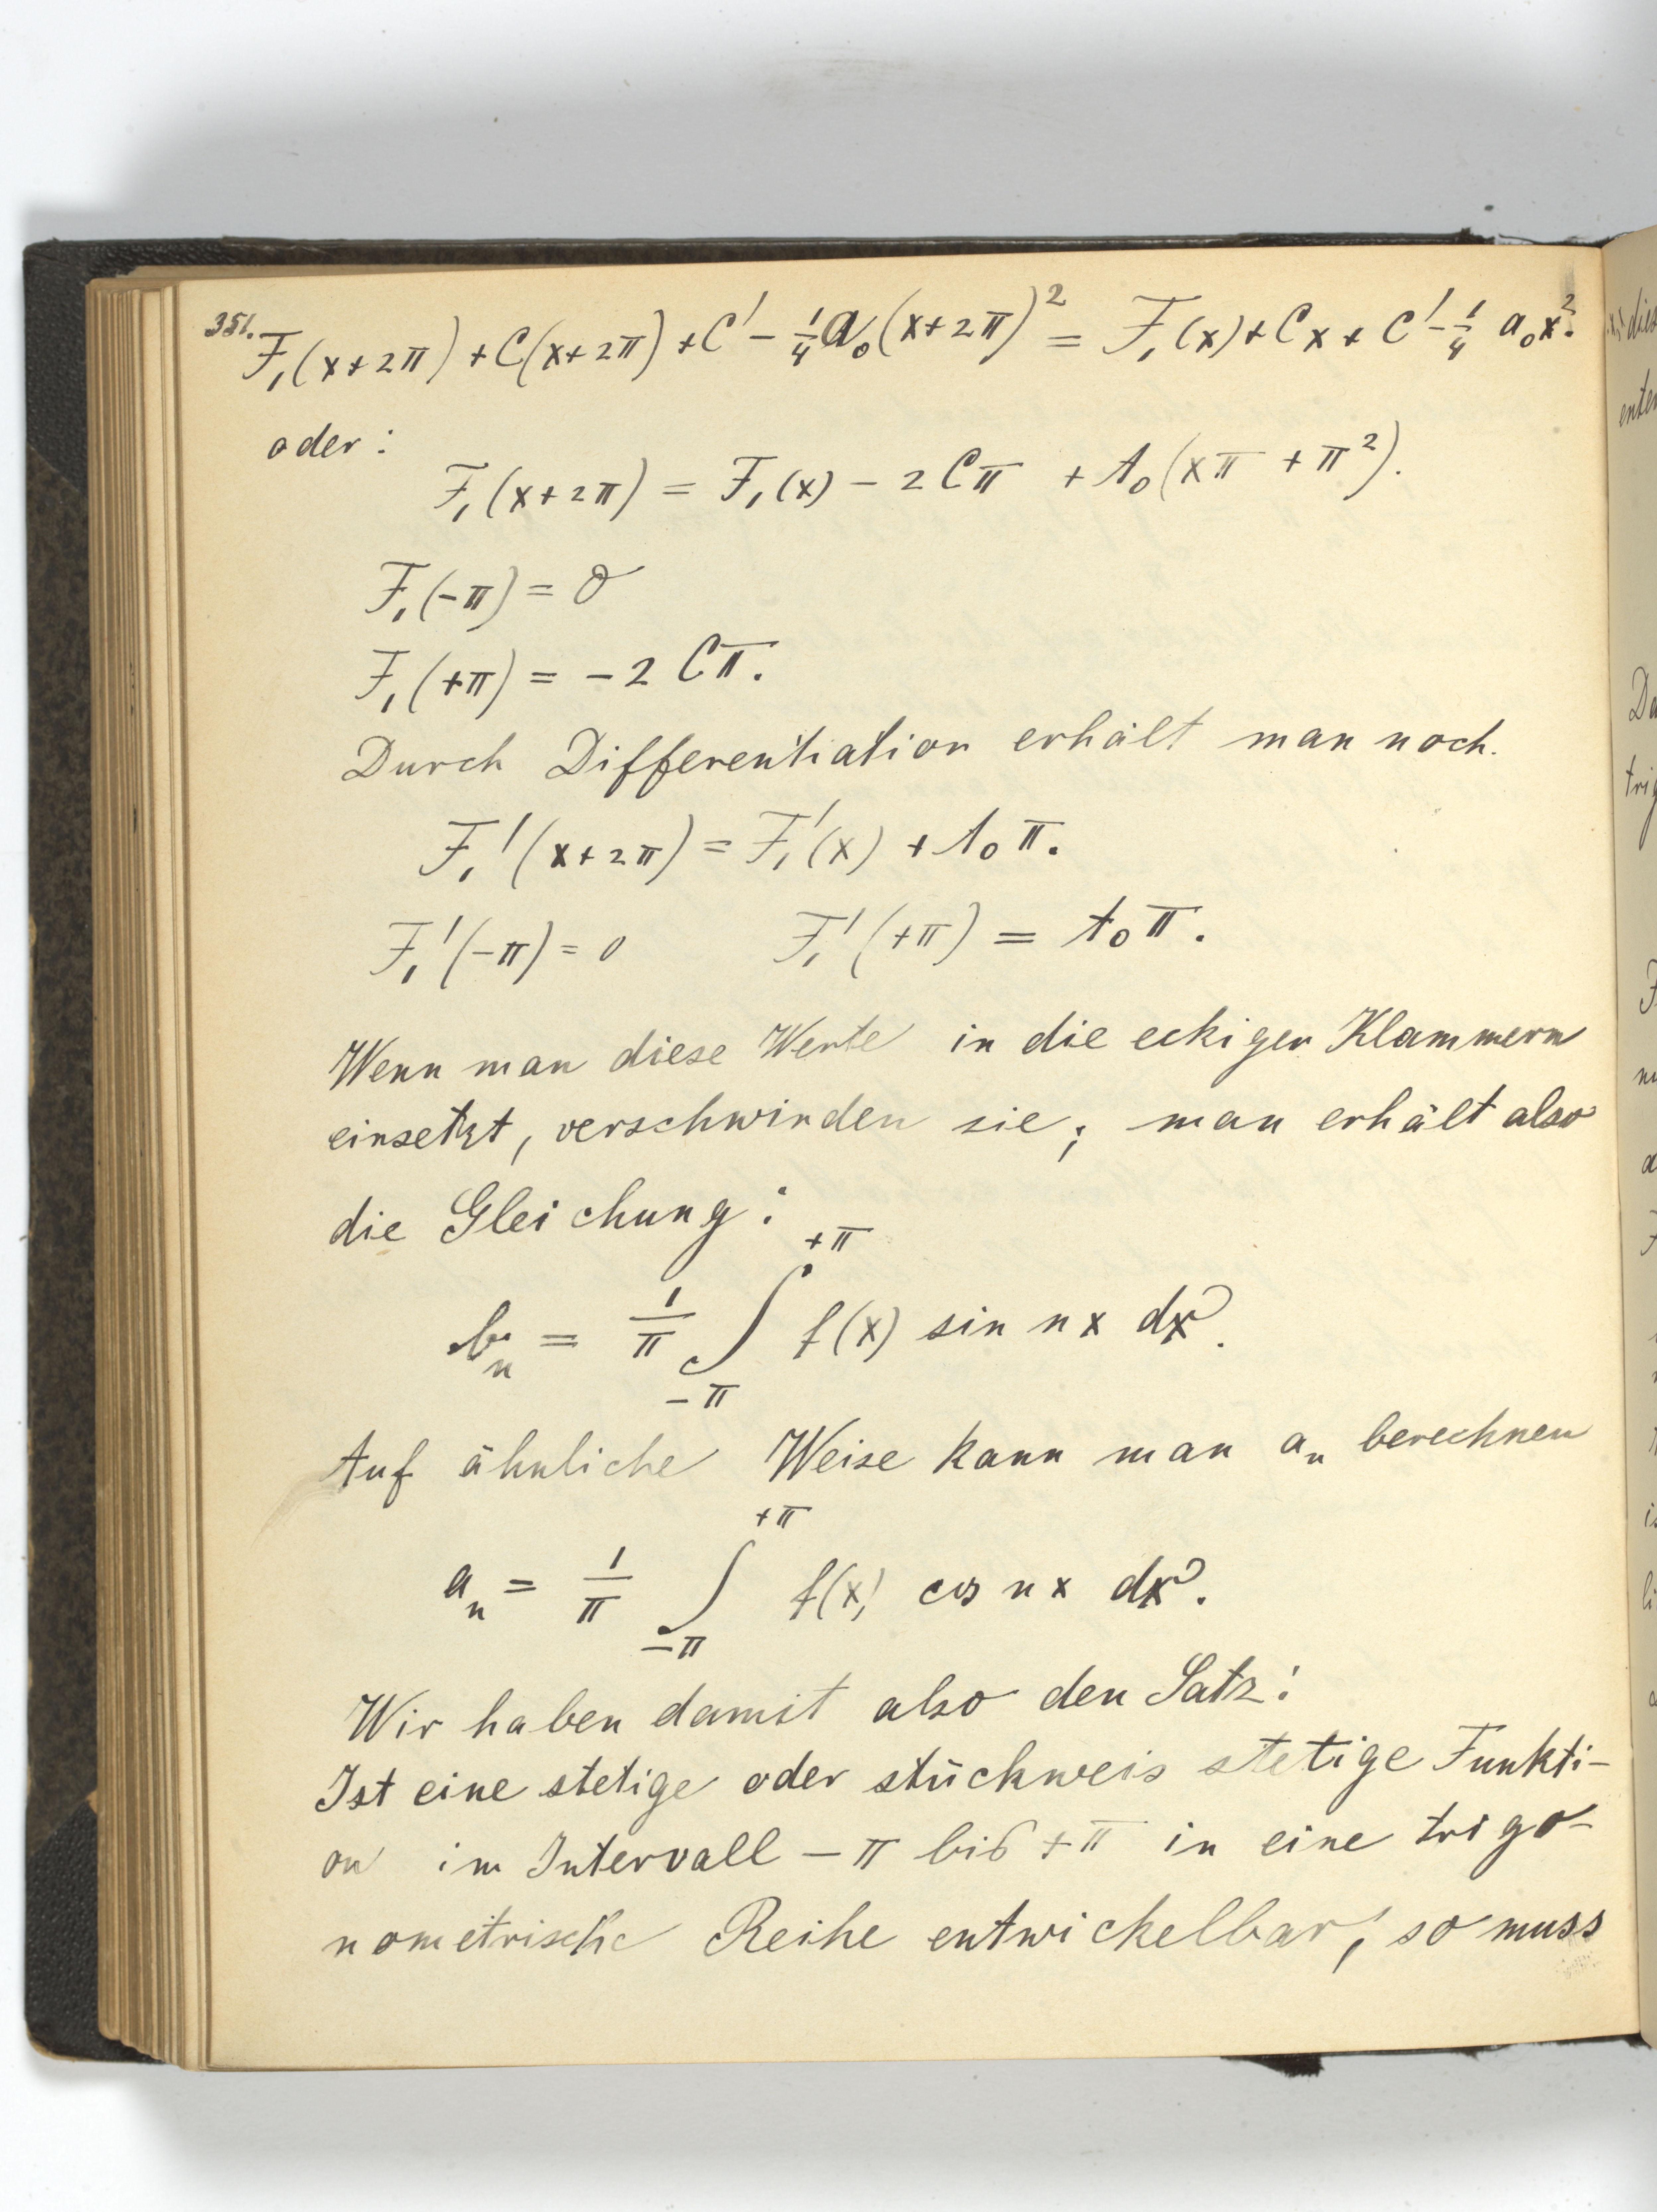 351.
F₁(x+2π) + C(x+2π) + C' - 1/4 a₀(x+2π)² = F₁(x) + Cx + C' - 1/4 a₀x².
oder:
F₁(x+2π) = F₁(x) - 2Cπ + A₀(xπ + π²).
F₁(-π) = 0
F₁(+π) = -2Cπ.
Durch Differentiation erhält man noch.
F₁'(x+2π) = F₁'(x) + A₀π.
F₁'(-π) = 0 F₁'(+π) = A₀π.
Wenn man diese Werte in die eckigen Klammern
einsetzt, verschwinden sie; man erhält also
die Gleichung:
bₙ = 1/π ∫_{-π}^{+π} f(x) sin nx dx.
Auf ähnliche Weise kann man aₙ berechnen
aₙ = 1/π ∫_{-π}^{+π} f(x) cos nx dx.
Wir haben damit also den Satz:
Ist eine stetige oder stückweis stetige Funkti-
on im Intervall -π bis +π in eine trigo-
nometrische Reihe entwickelbar, so muss